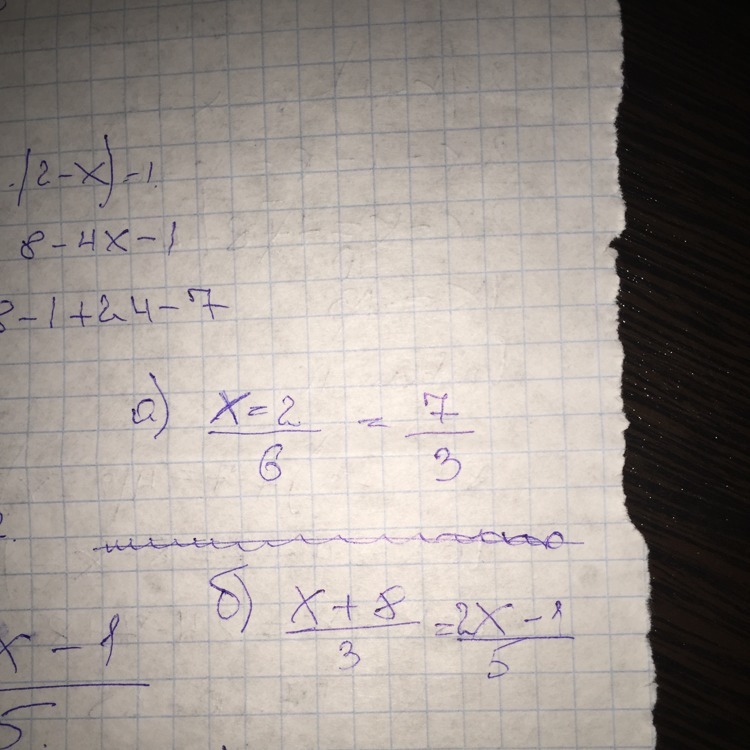 .(2-x)-1
8-4x-1
8-1+24-7
а) x=2/6 = 7/3
б) x+8/3 = 2x-1/5
x-1/5.